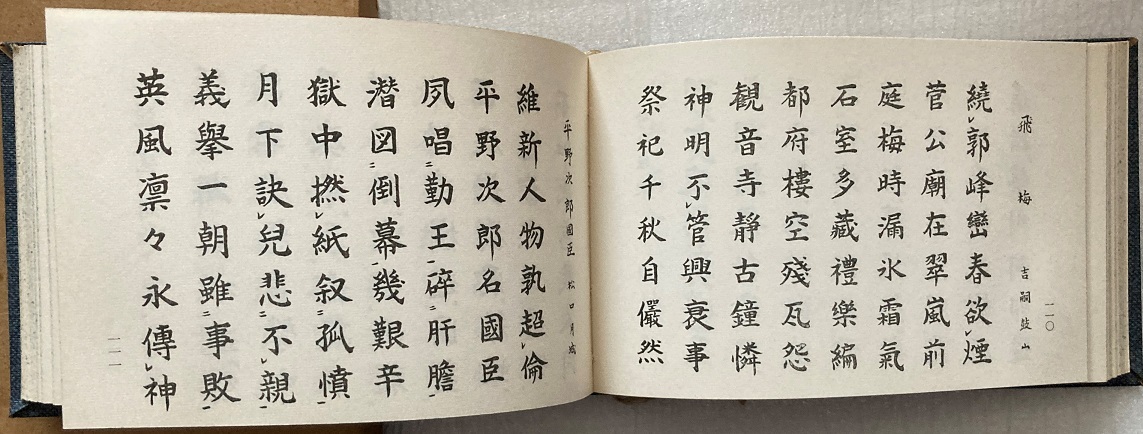 一一〇
飛梅 吉嗣鼓山
繞郭峰巒春欲煙
菅公廟在翠嵐前
庭梅時漏氷霜氣
石室多藏禮樂編
都府樓空殘瓦怨
観音寺靜古鐘憐
神明不管興衰事
祭祀千秋自儼然
平野次郎國臣 松口月城
維新人物孰超倫
平野次郎名國臣
夙唱勤王碎肝膽
潜図倒幕幾艱辛
獄中撚紙叙孤憤
月下訣兒悲不親
義擧一朝雖事敗
英風凛々永傳神
一一一